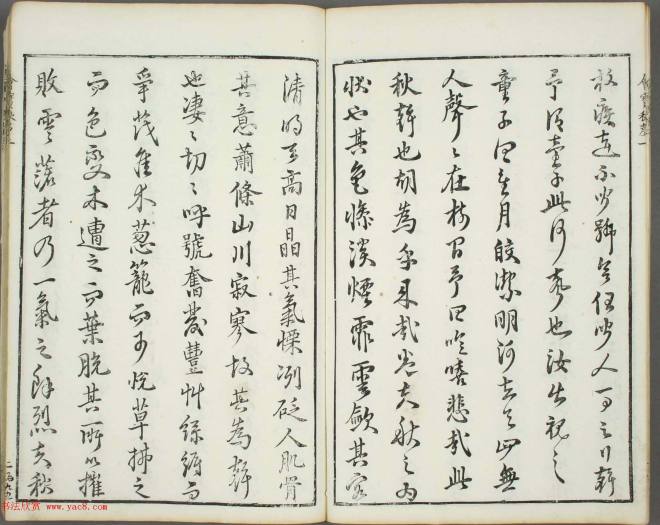 枚疾走不聞號令但聞人馬之行聲
予謂童子此何聲也汝出視之
童子曰星月皎潔明河在天四無
人聲〻在樹間予曰噫嘻悲哉此
秋聲也胡為乎來哉蓋夫秋之為
狀也其色慘淡煙霏雲斂其容
清明天高日晶其氣慄冽砭人肌骨
其意蕭條山川寂寥故其為聲
也淒〻切〻呼號奮發豐艸綠縟而
爭茂佳木蔥籠而可悅草拂之
而色變木遭之而葉脫其所以摧
敗零落者乃一氣之餘烈夫秋
书法欣赏 www.yac8.com